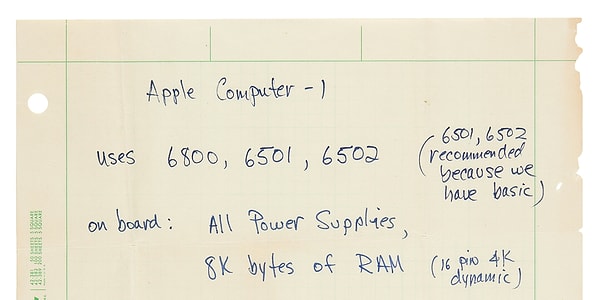 Apple Computer - 1
uses 6800, 6501, 6502
(6501, 6502
recommended
because we
have basic)
on board: All Power Supplies,
8K bytes of RAM (16 pin 4K
dynamic)